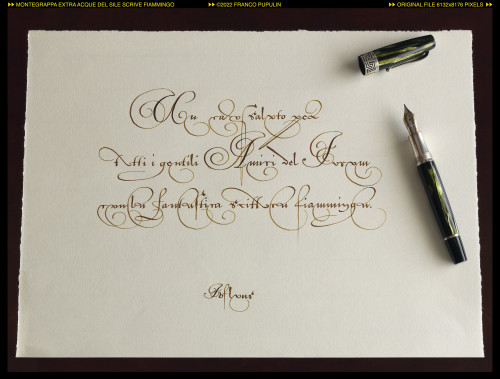 MONTEGRAPPA EXTRA ACQUE DEL SILE SCRIVE FIAMMINGO ©2022 FRANCO PUPULIN ORIGINAL FILE 6132x8176 PIXELS
Un caro saluto per
tutti i gentili Amici del Forum
con la fantastica scrittura fiamminga.